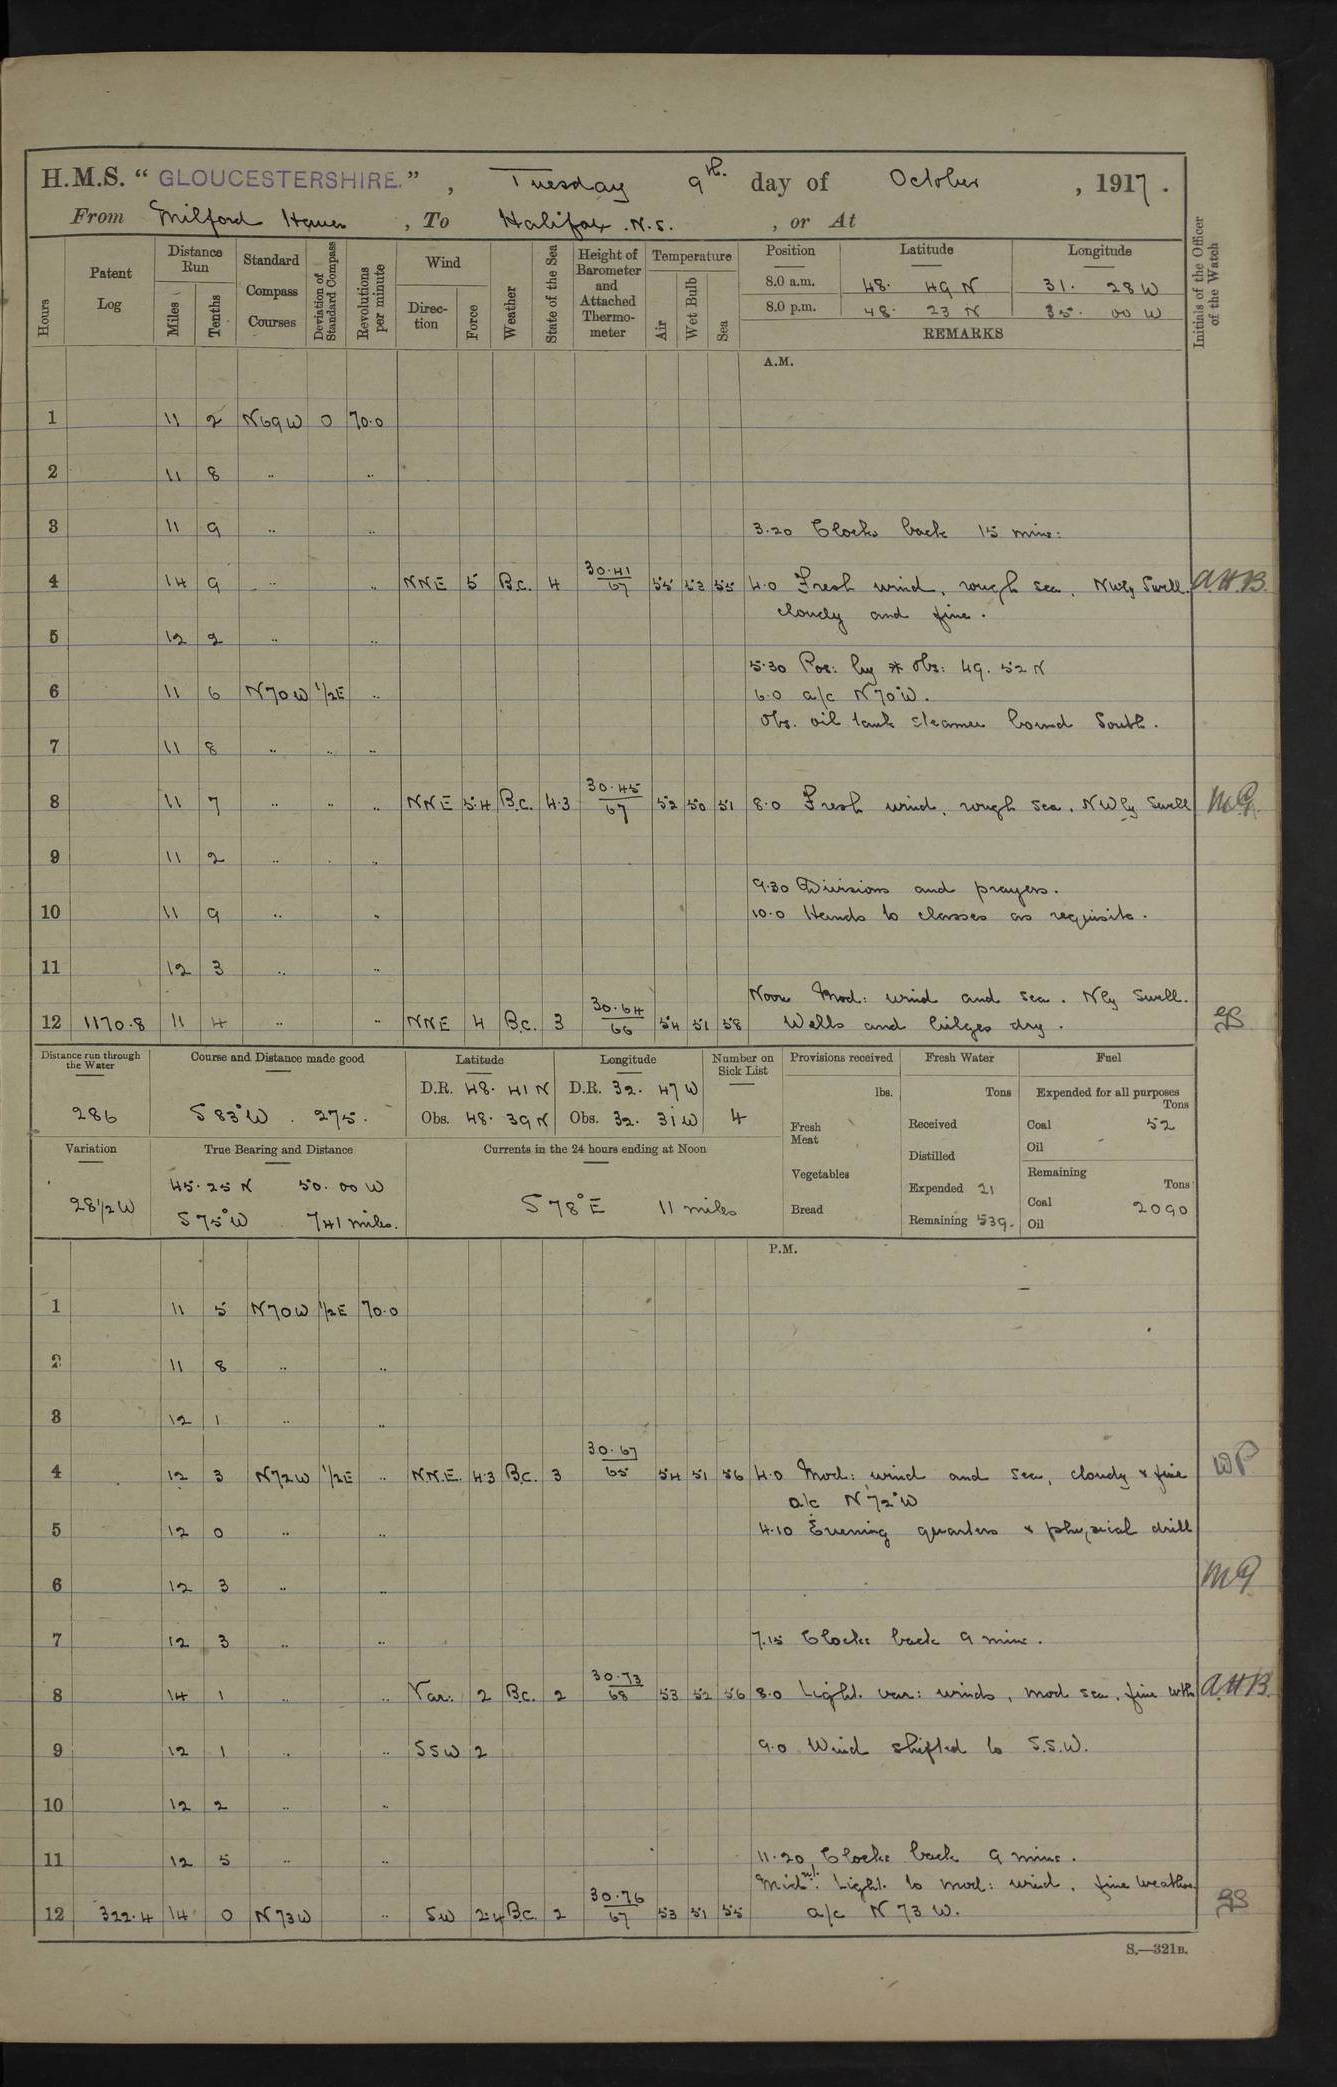 H.M.S. “ GLOUCESTERSHIRE. ” , Tuesday 9th. day of October , 1917 .
From Milford Haven , To Halifax . N.S. , or At
Hours Patent Log Distance Run Miles Tenths Standard Compass Courses Deviation of Standard Compass Revolutions per minute Wind Direction Force Weather State of the Sea Height of Barometer and Attached Thermometer Temperature Air Wet Bulb Sea Position Latitude Longitude Initials of the Officer of the Watch
8.0 a.m. 48. 49 N 31. 28 W
8.0 p.m. 48. 23 N 35. 00 W
REMARKS
A.M.
1 11 2 N69W 0 70.0
2 11 8 .. ..
3 11 9 .. .. 3.20 Clocks back 15 mins:
4 14 9 .. .. NNE 5 B.c. 4 30.41/67 55 53 55 4.0 Fresh wind, rough sea, NWly Swell. A.H.B.
cloudy and fine.
5 12 2 .. ..
5.30 Pos: by * Obs: 49. 52 N
6 11 6 N70W 1/2E .. 6.0 a/c N 70°W.
Obs. oil tank steamer bound South.
7 11 8 .. .. ..
8 11 7 .. .. .. NNE 5.4 B.c. 4.3 30.45/67 52 50 51 8.0 Fresh wind, rough sea, NWly Swell
9 11 2 .. . ..
9.30 Divisions and prayers.
10 11 9 .. .. 10.0 Hands to classes as requisite.
11 12 3 .. ..
Noon Mod: wind and sea. Nly Swell.
12 1170.8 11 4 .. .. NNE 4 B.c. 3 30.64/66 54 51 58 Wells and bilges dry.
Distance run through the Water Course and Distance made good Latitude Longitude Number on Sick List Provisions received Fresh Water Fuel
D.R. 48. 41 N D.R. 32. 47 W lbs. Tons Expended for all purposes Tons
286 S 83°W . 275. Obs. 48. 39 N Obs. 32. 31 W 4 Fresh Meat Received Coal 52
Oil -
Variation True Bearing and Distance Currents in the 24 hours ending at Noon Distilled
45.25 N 50.00 W Vegetables Expended 21 Remaining Tons
28 1/2 W S 75°W 741 miles. S 78° E 11 miles Bread Remaining 539. Coal 2090
Oil
P.M.
1 11 5 N70W 1/2E 70.0
2 11 8 .. ..
3 12 1 .. ..
4 12 3 N72W 1/2E .. N.N.E. 4.3 B.c. 3 30.67/65 54 51 56 4.0 Mod: wind and sea, cloudy & fine WP
a/c N 72°W
5 12 0 .. .. 4.10 Evening quarters & physical drill
6 12 3 .. ..
7 12 3 .. .. 7.15 Clocks back 9 mins.
8 14 1 .. .. Var: 2 B.c. 2 30.73/68 53 52 56 8.0 Light. var: winds, mod sea, fine wth A.H.B.
9 12 1 .. .. SSW 2 9.0 Wind shifted to S.S.W.
10 12 2 .. ..
11 12 5 .. .. 11.20 Clocks back 9 mins.
Midnt. Light. to mod: wind, fine weather
12 322.4 14 0 N73W .. SW 2.4 B.c. 2 30.76/67 53 51 55 a/c N 73 W.
S.—321B.